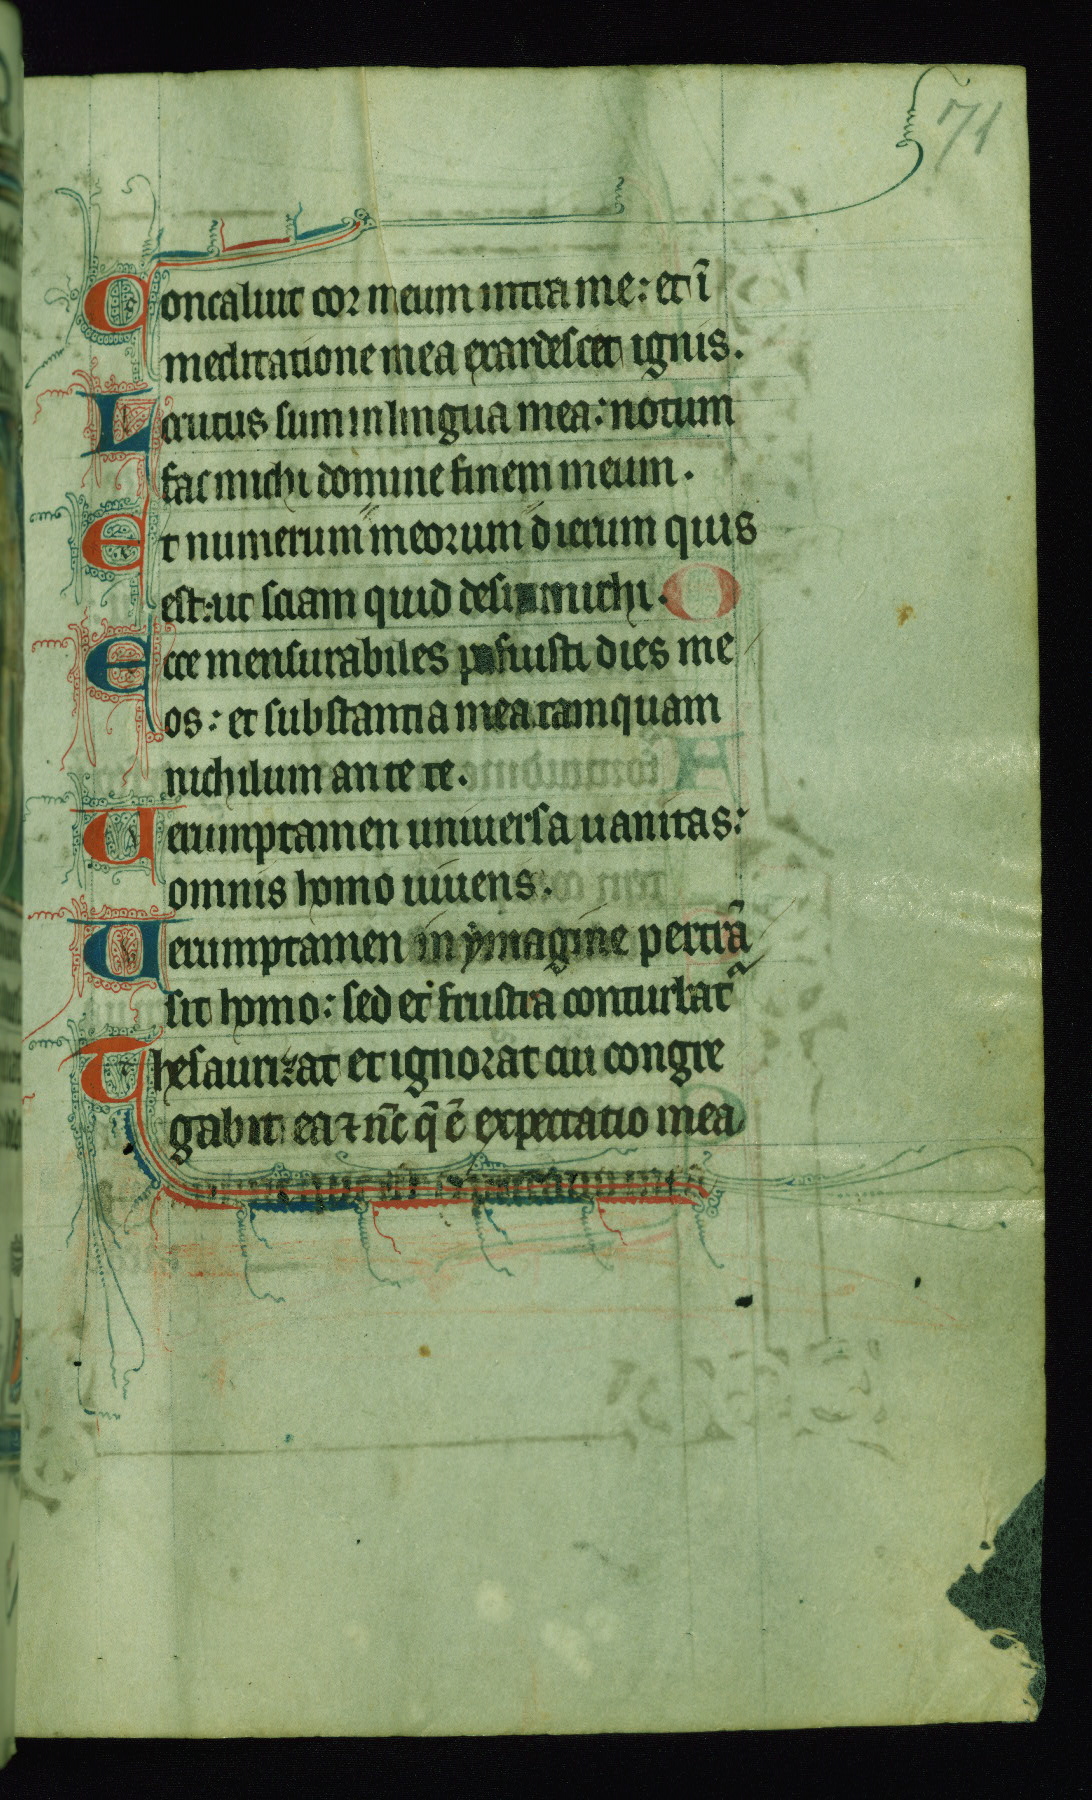 71
Concaluit cor meum intra me: et ī
meditatione mea exardescet ignis.
Locutus sum in lingua mea: notum
fac michi domine finem meum.
Et numerum meorum dierum quis
est: ut sciam quid desit michi.
Ecce mensurabiles posuisti dies me
os: et substantia mea tamquam
nichilum ante te.
Uerumptamen uniuersa uanitas:
omnis homo uiuens.
Uerumptamen in ymagine pertrā
sit homo: sed et frustra conturbat
Thesaurizat et ignorat cui congre
gabit ea ⁊ nc̄ q̄ ē expectatio mea